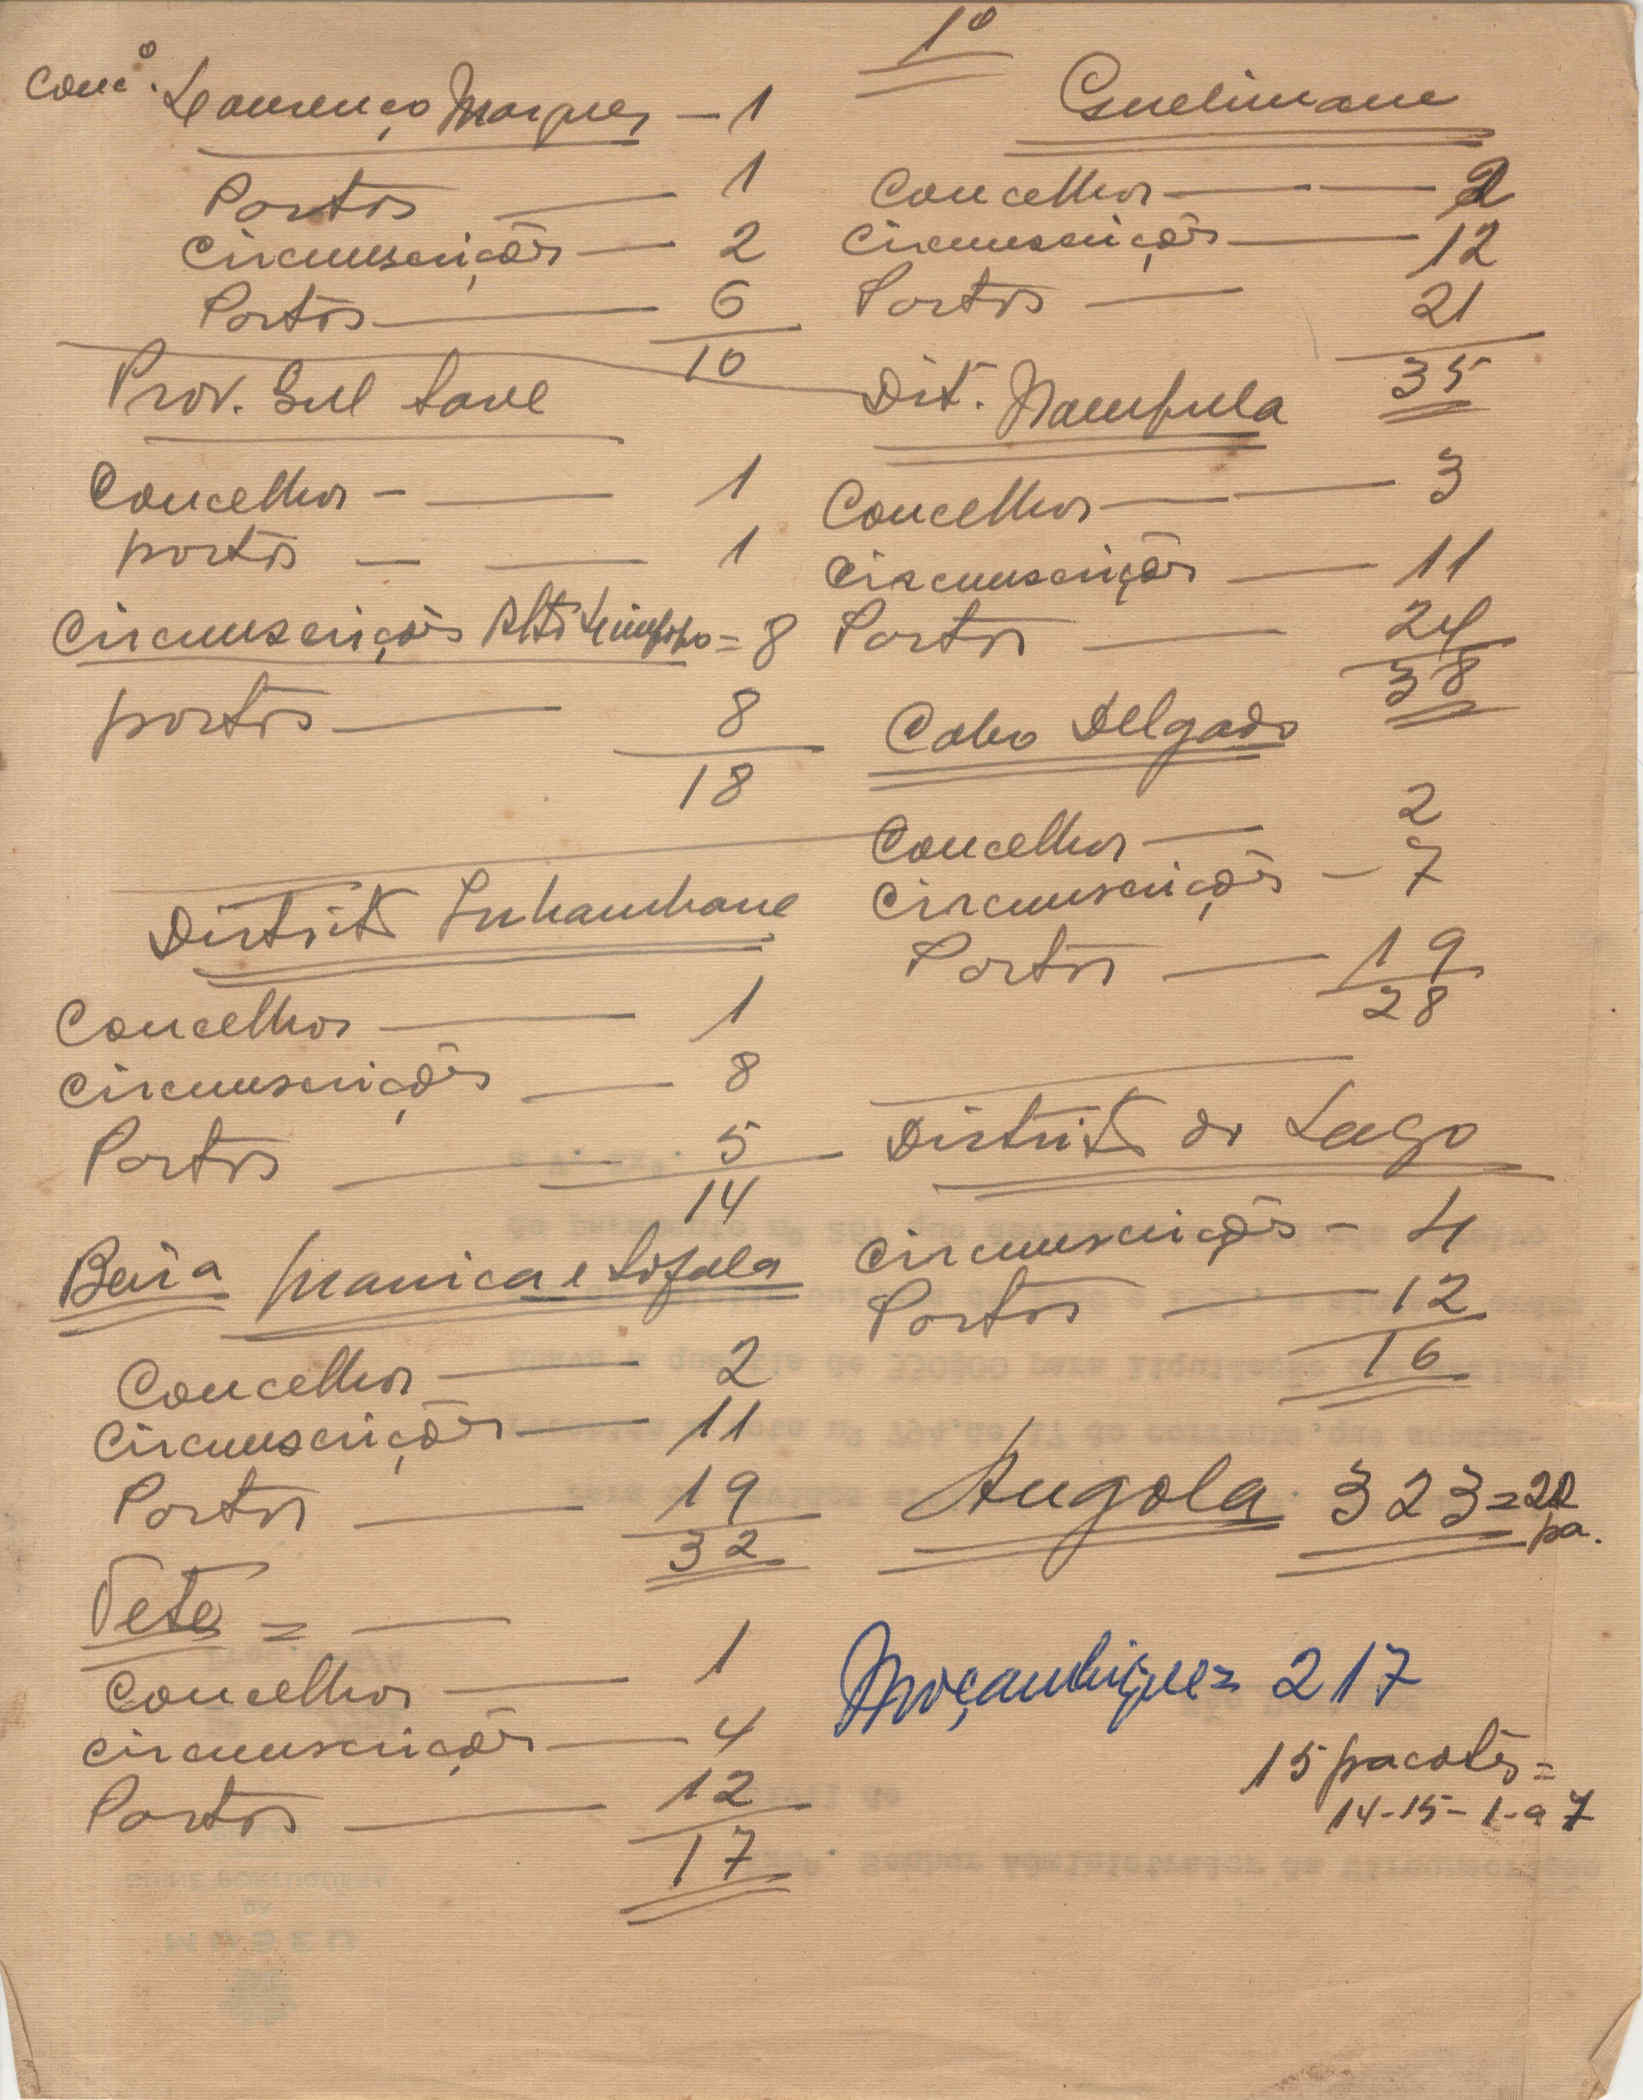 1º
Concº. Lourenço Marques - 1
Postos — 1
Circunscrições — 2
Postos — 6
10
Prov. Sul Save
Concelhos - — 1
postos — — 1
Circunscrições Alto Limpopo = 8
postos — 8
18
Distrito Inhambane
Concelhos — 1
Circunscrições — 8
Postos — 5
14
Beira Manica e Sofala
Concelhos — 2
Circunscrições — 11
Postos — 19
32
Tete = —
Concelhos — 1
Circunscrições — 4
Postos — 12
17
Quelimane
Concelhos — — 2
Circunscrições — 12
Postos — 21
35
Dit. Nampula
Concelhos — — 3
Circunscrições — 11
Postos — 24
38
Cabo Delgado
Concelhos — 2
Circunscrições — 7
Postos — 19
28
Distrito do Lago
Circunscrições - 4
Postos — 12
16
Angola 323 = 22
pa.
Moçambique = 217
15 pacotes =
14-15-1-a 7